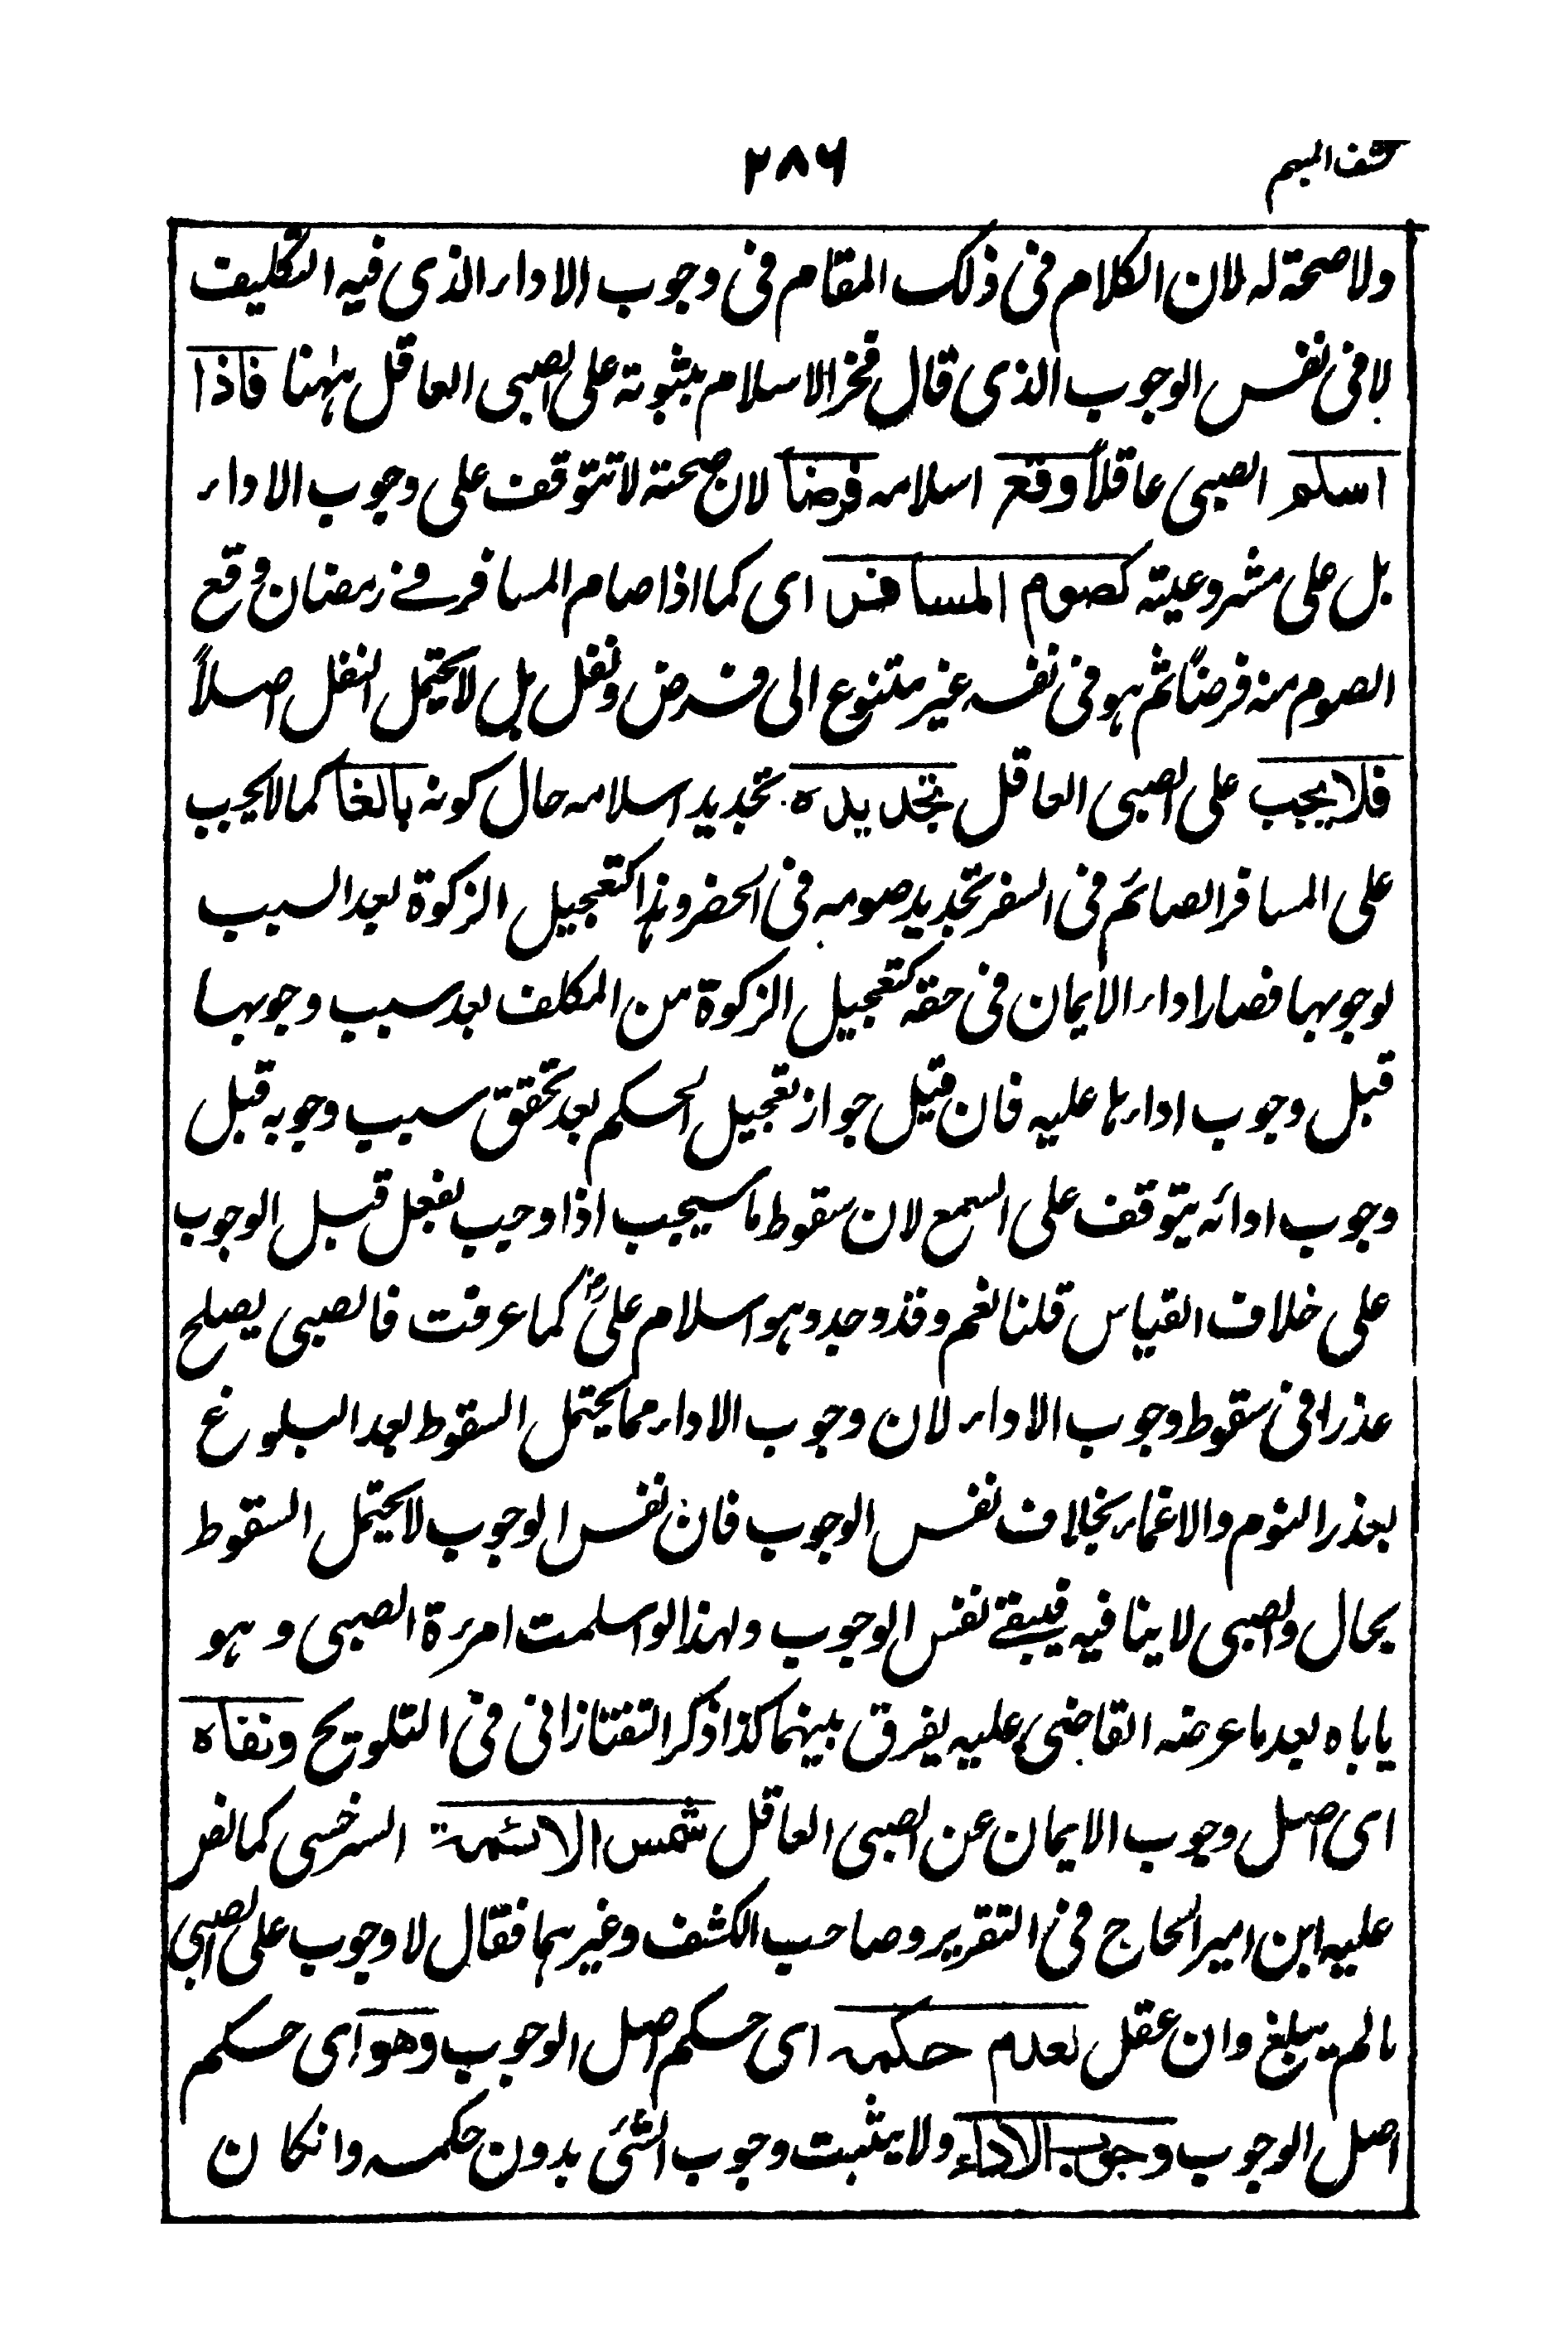 كشف المبهم
٢٨٦
ولا صحة له لان الكلام فى ذلك المقام فى وجوب الاداء الذى فيه التكليف
لا فى نفس الوجوب الذى قال فخر الاسلام بثبوته على الصبى العاقل ههنا فاذا
اسلم الصبى عاقلاً وقع اسلامه فرضا لان صحته لا تتوقف على وجوب الاداء
بل على مشروعيته كصوم المسافر اى كما اذا صام المسافر فے رمضان وقع
الصوم منه فرضًا ثم هو فى نفسه غير متنوع الى فرض ونفل بل لا يحتمل النفل اصلاً
فلا يجب على الصبى العاقل تجديده تجديد اسلامه حال كونه بالغا كما لا يجب
على المسافر الصائم فى السفر تجديد صومه فى الحضر وهذا كتعجيل الزكوة بعد السبب
لوجوبها فصار اداء الايمان فى حقه كتعجيل الزكوة من المكلف بعد سبب وجوبها
قبل وجوب ادائها عليه فان قيل جواز تعجيل الحكم بعد تحقق سبب وجوبه قبل
وجوب ادائه يتوقف على السمع لان سقوط ما سيجب اذا وجب بفعل قبل الوجوب
على خلاف القياس قلنا نعم وقد وجد وهو اسلام علىؓ كما عرفت فالصبى يصلح
عذرا فى سقوط وجوب الاداء لان وجوب الاداء مما يحتمل السقوط بعد البلوغ
بعذر النوم والاغماء بخلاف نفس الوجوب فان نفس الوجوب لا يحتمل السقوط
بحال والصبى لا ينافيه فيبقے نفس الوجوب ولهذا لو اسلمت امرءة الصبى وهو
ياباه بعد ما عرضه القاضى عليه يفرق بينهما كذا ذكر التفتازانى فى التلويح ونفاه
اى اصل وجوب الايمان عن الصبى العاقل شمس الائمة السرخسى كما نص
عليه ابن امير الحاج فى التقرير وصاحب الكشف وغيرهما فقال لا وجوب على الصبى
ما لم يبلغ وان عقل لعدم حكمه اى حكم اصل الوجوب وهو اى حكم
اصل الوجوب وجوب الاداء ولا يثبت وجوب الشئ بدون حكمه وان كان